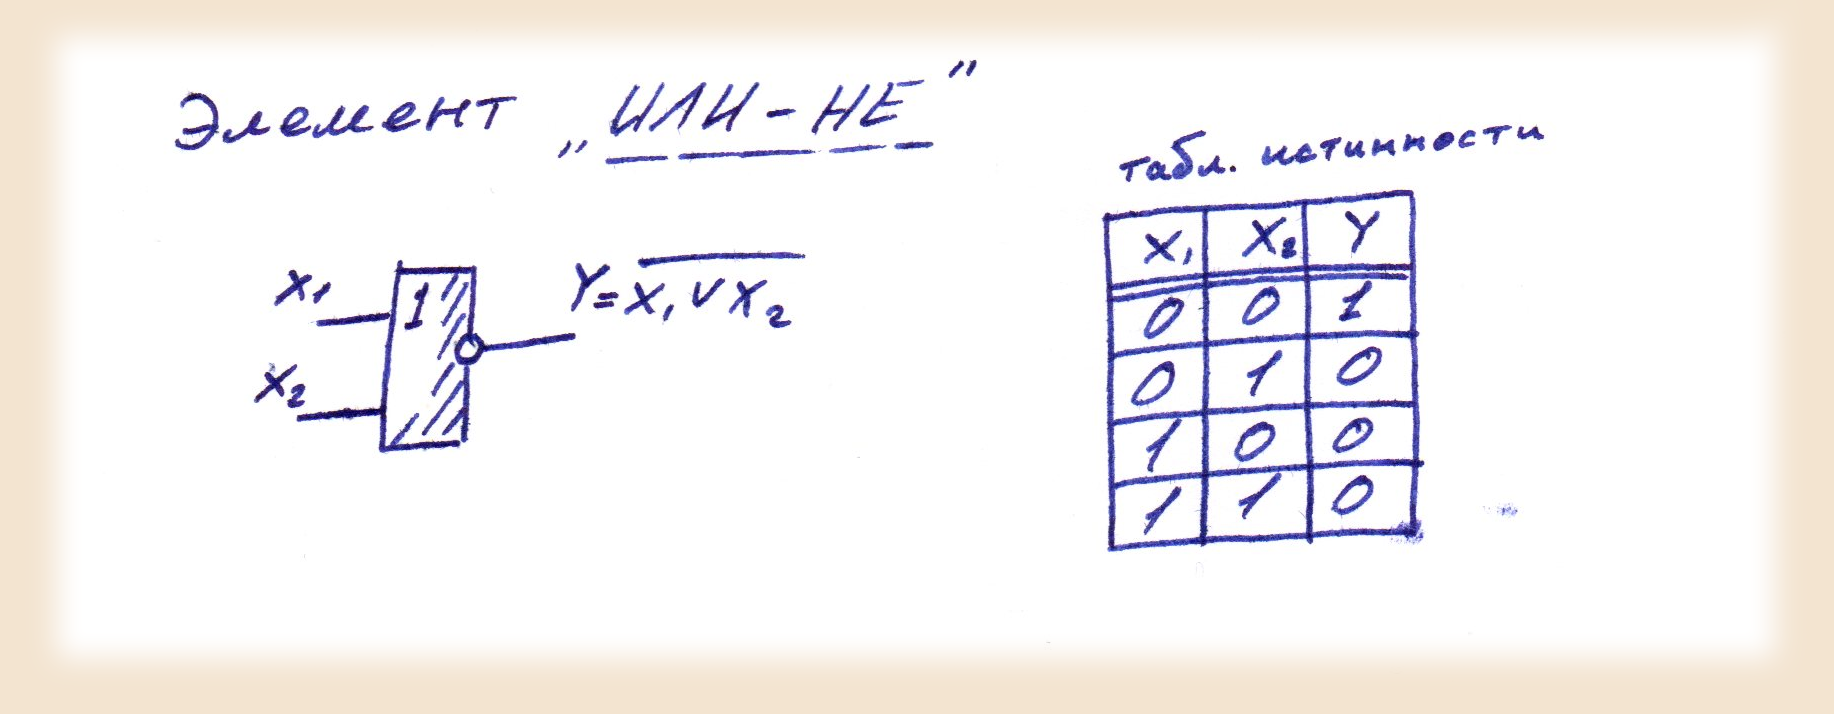 Элемент „ИЛИ-НЕ”
x₁
1
x₂
Y=x₁∨x₂
табл. истинности
X₁ X₂ Y
0 0 1
0 1 0
1 0 0
1 1 0